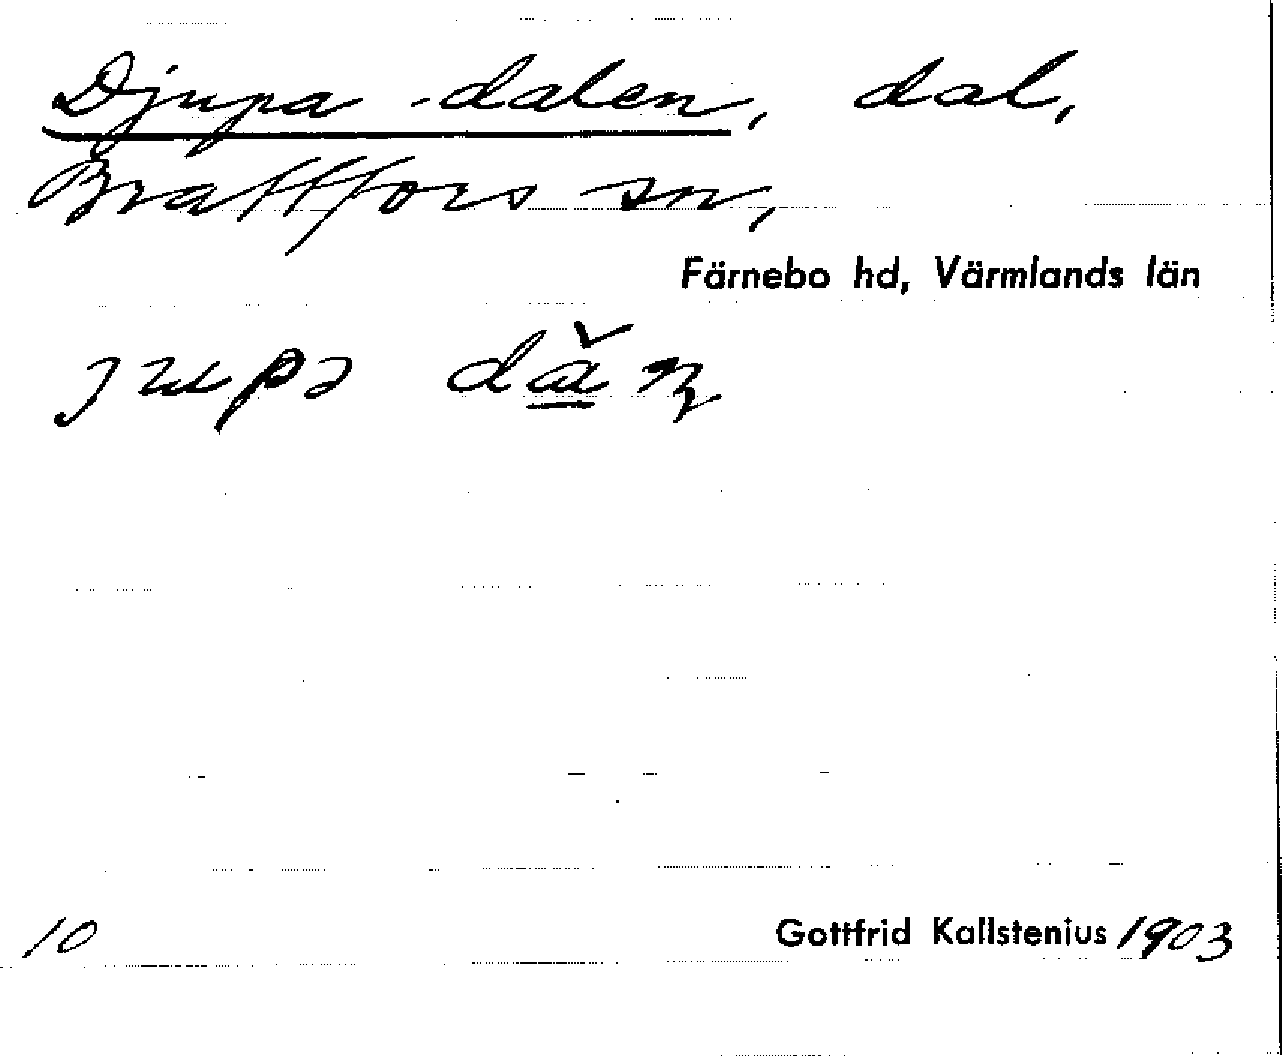 Djupa -dalen, dal,
Brattfors sn,
Färnebo hd, Värmlands län
10
Gottfrid Kallstenius 1903